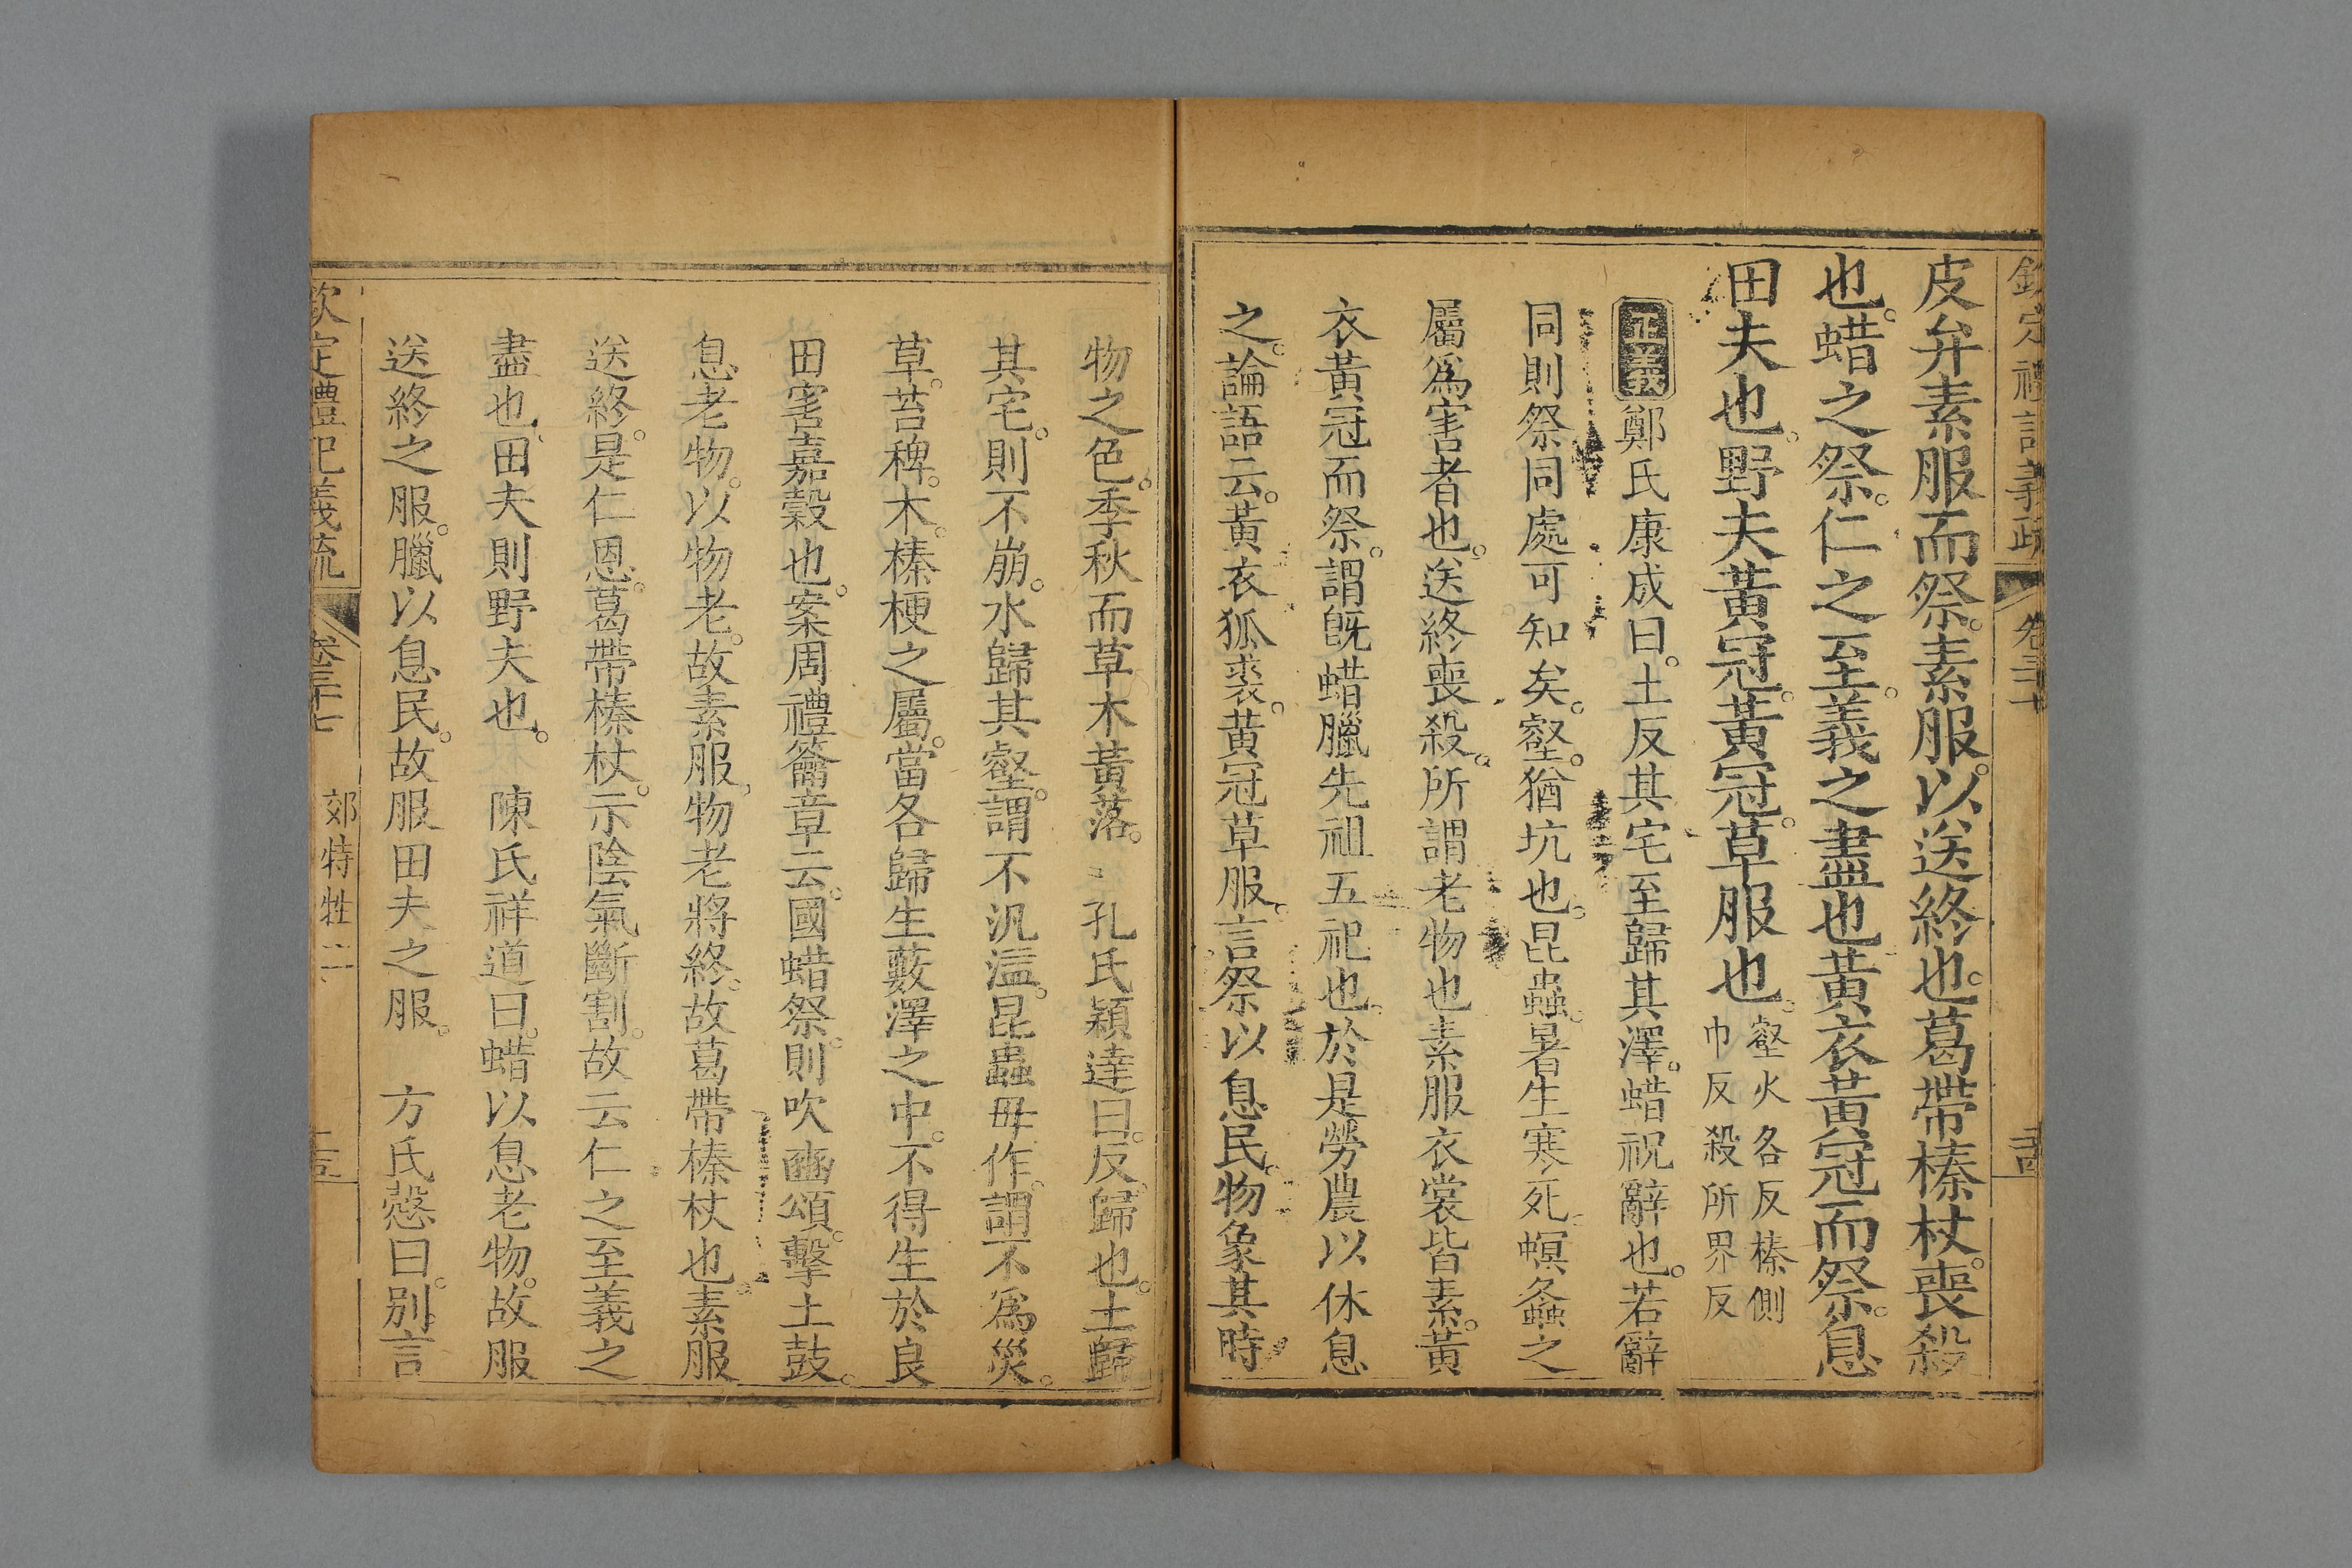 欽定禮記義疏 卷三十
皮弁素服而祭。素服以送終也。葛帶榛杖。喪殺
也。蜡之祭。仁之至。義之盡也黃衣黃冠而祭。息
田夫也。野夫黃冠。黃冠。草服也。壑火各反榛側
巾反殺所界反
正義鄭氏康成曰。土反其宅至歸其澤。蜡祝辭也。若辭
同則祭同處可知矣。壑。猶坑也。昆蟲。暑生寒死螟螽之
屬爲害者也。送終喪殺。所謂老物也素服衣裳皆素。黃
衣黃冠而祭。謂旣蜡臘先祖五祀也。於是勞農以休息
之。論語云。黃衣狐裘。黃冠草服。言祭以息民。物象其時
物之色。季秋而草木黃落。 孔氏穎達曰。反。歸也。土歸
其宅。則不崩。水歸其壑。謂不汎溢。昆蟲毋作。謂不爲災。
草。苔稗。木。榛梗之屬。當各歸生藪澤之中。不得生於良
田害嘉穀也。案周禮籥章云。國蜡祭。則吹豳頌。擊土鼓。
息老物。以物老。故素服。物老將終。故葛帶榛杖也。素服
送終。是仁恩。葛帶榛杖。示陰氣斷割。故云仁之至義之
盡也。田夫則野夫也。 陳氏祥道曰。蜡以息老物。故服
送終之服。臘以息民。故服田夫之服。 方氏慤曰。別言
欽定禮記義疏 卷三十七 郊特牲二